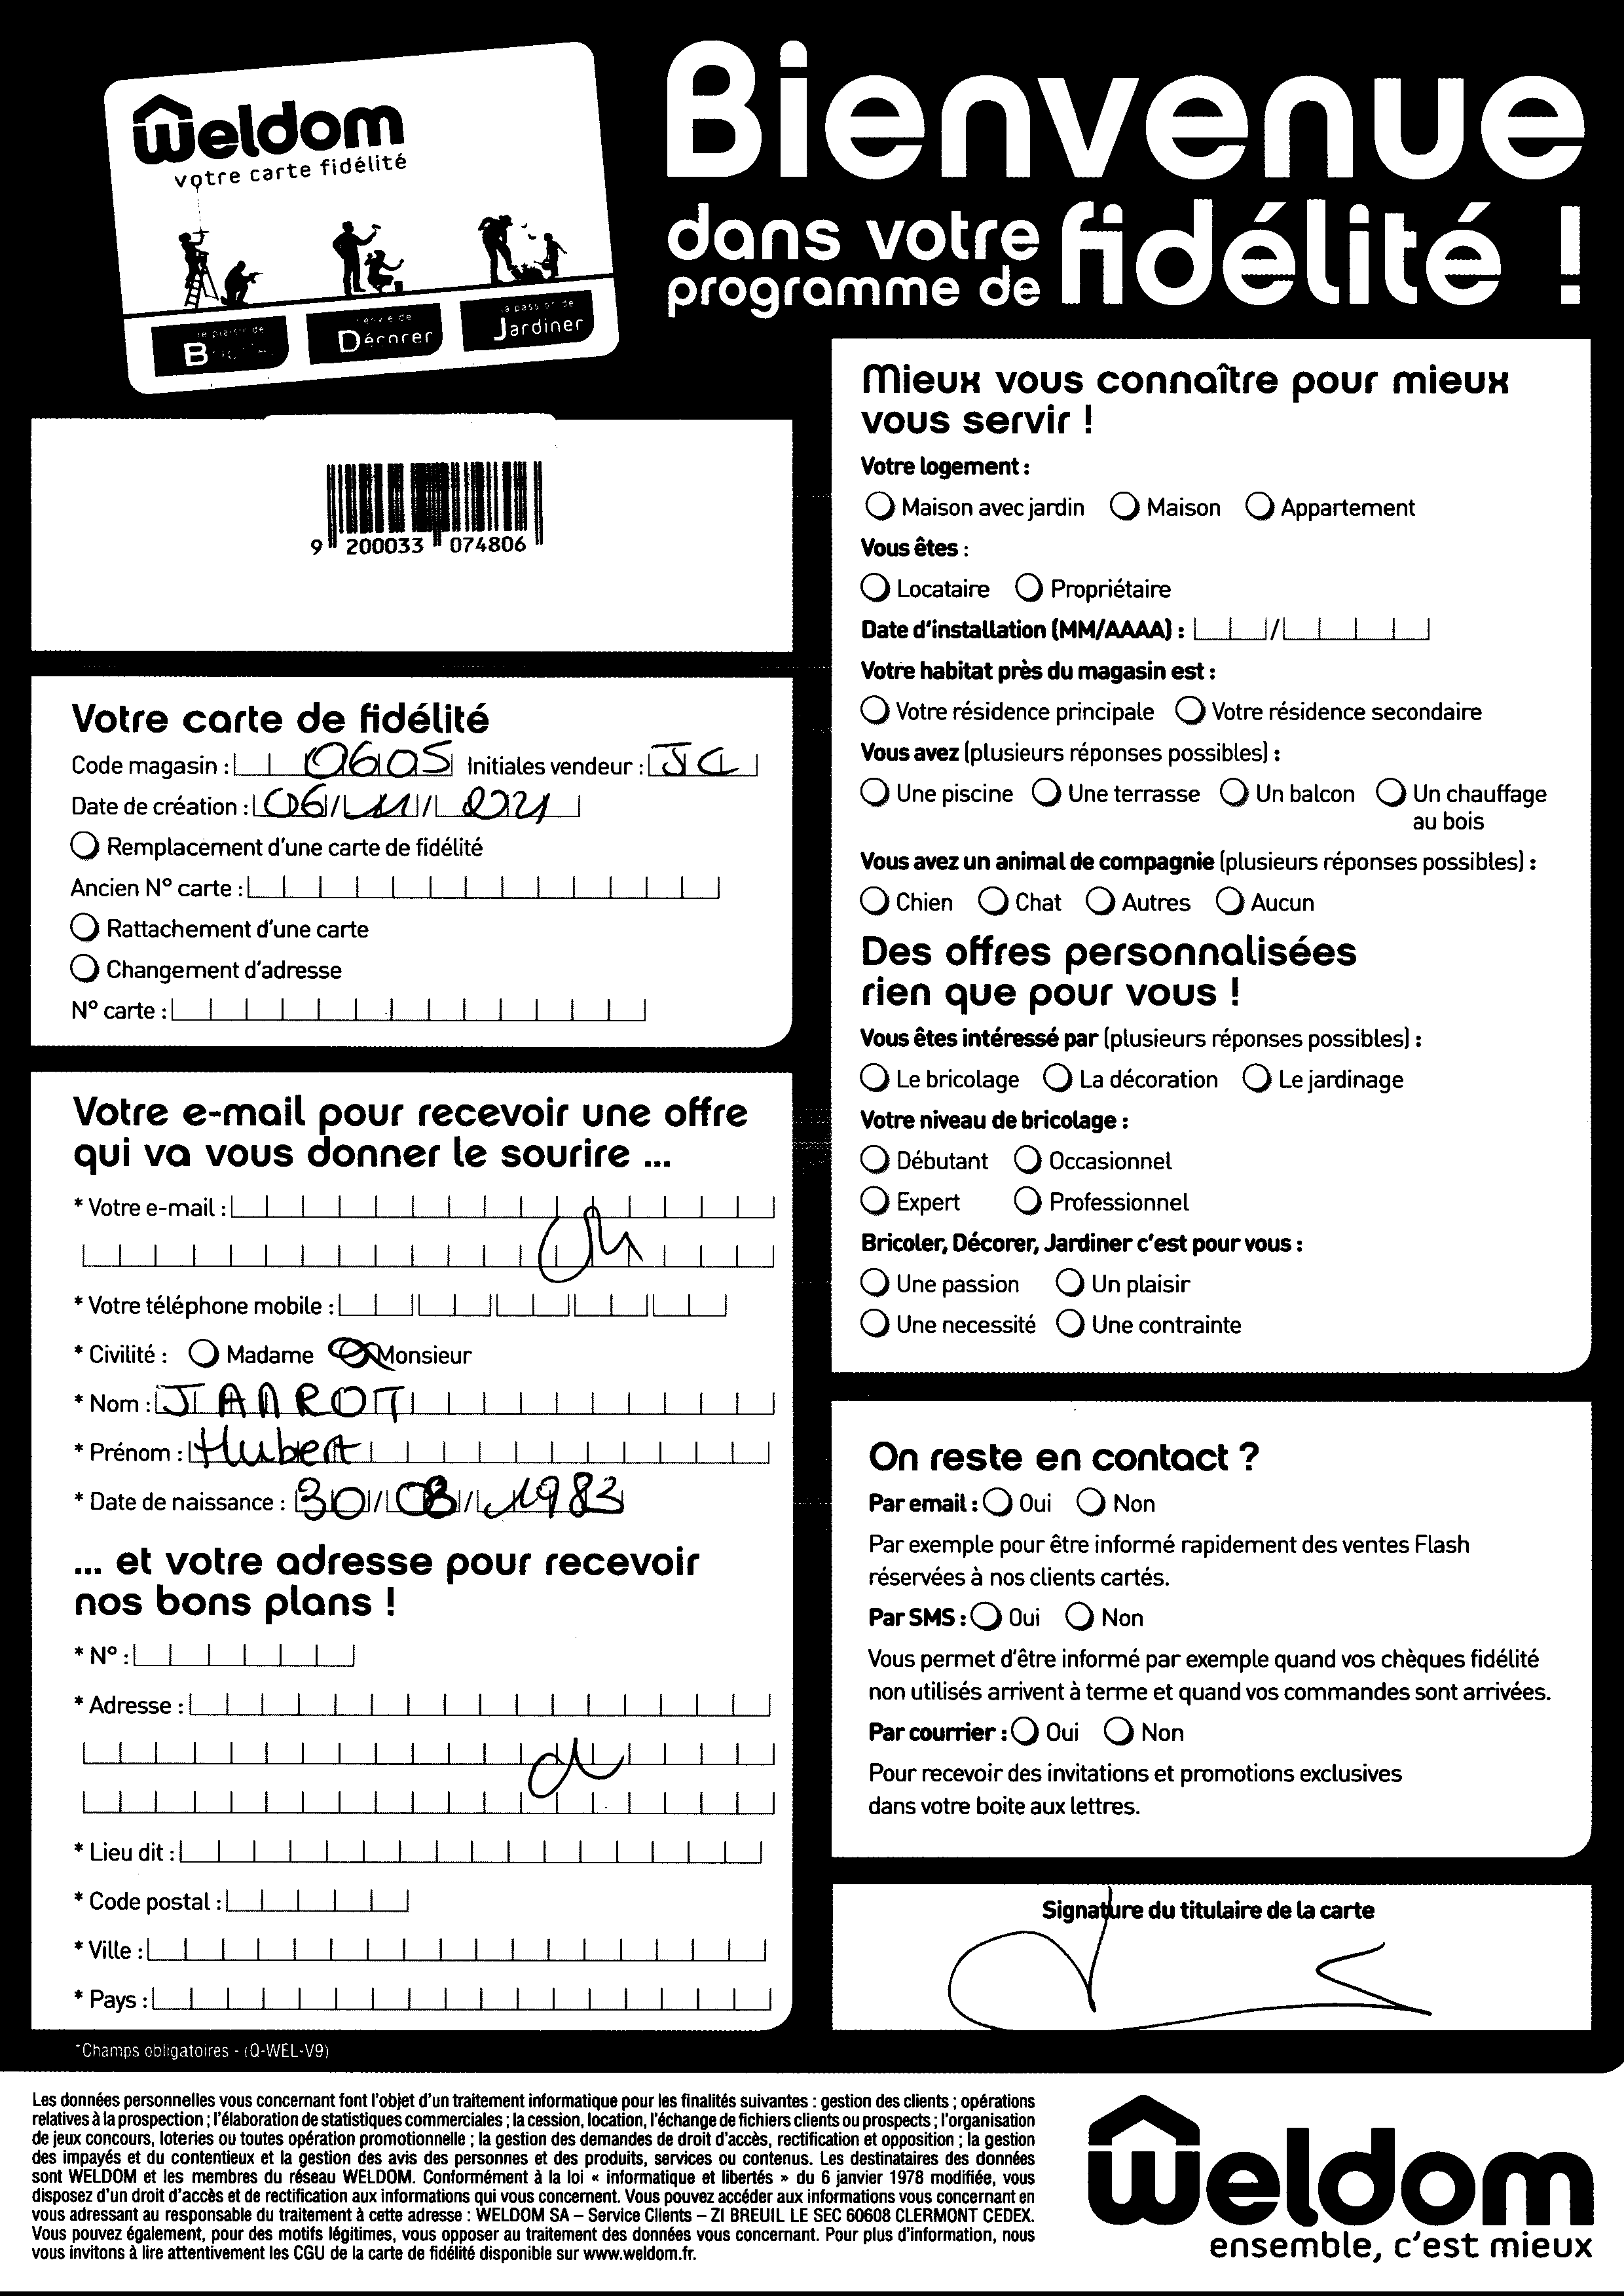 Weldom
votre carte fidélité
le plaisir de
l'envie de
Décorer
la passion de
Jardiner
Bienvenue
dans votre
programme de fidélité !
9 200033 074806
Votre carte de fidélité
Code magasin : 0605 Initiales vendeur :
Date de création : 06/11/
Remplacement d'une carte de fidélité
Ancien N° carte :
Rattachement d'une carte
Changement d'adresse
N° carte :
Votre e-mail pour recevoir une offre
qui va vous donner le sourire ...
* Votre e-mail :
* Votre téléphone mobile :
* Civilité : Madame Monsieur
* Nom :
* Prénom : Hubert
* Date de naissance : 30/08/1983
... et votre adresse pour recevoir
nos bons plans !
* N° :
* Adresse :
* Lieu dit :
* Code postal :
* Ville :
* Pays :
*Champs obligatoires - (Q-WEL-V9)
Mieux vous connaître pour mieux
vous servir !
Votre logement :
Maison avec jardin Maison Appartement
Vous êtes :
Locataire Propriétaire
Date d'installation (MM/AAAA) : /
Votre habitat près du magasin est :
Votre résidence principale Votre résidence secondaire
Vous avez (plusieurs réponses possibles) :
Une piscine Une terrasse Un balcon Un chauffage
au bois
Vous avez un animal de compagnie (plusieurs réponses possibles) :
Chien Chat Autres Aucun
Des offres personnalisées
rien que pour vous !
Vous êtes intéressé par (plusieurs réponses possibles) :
Le bricolage La décoration Le jardinage
Votre niveau de bricolage :
Débutant Occasionnel
Expert Professionnel
Bricoler, Décorer, Jardiner c'est pour vous :
Une passion Un plaisir
Une necessité Une contrainte
On reste en contact ?
Par email : Oui Non
Par exemple pour être informé rapidement des ventes Flash
réservées à nos clients cartés.
Par SMS : Oui Non
Vous permet d'être informé par exemple quand vos chèques fidélité
non utilisés arrivent à terme et quand vos commandes sont arrivées.
Par courrier : Oui Non
Pour recevoir des invitations et promotions exclusives
dans votre boite aux lettres.
Signature du titulaire de la carte
Les données personnelles vous concernant font l'objet d'un traitement informatique pour les finalités suivantes : gestion des clients ; opérations
relatives à la prospection ; l'élaboration de statistiques commerciales ; la cession, location, l'échange de fichiers clients ou prospects ; l'organisation
de jeux concours, loteries ou toutes opération promotionnelle ; la gestion des demandes de droit d'accès, rectification et opposition ; la gestion
des impayés et du contentieux et la gestion des avis des personnes et des produits, services ou contenus. Les destinataires des données
sont WELDOM et les membres du réseau WELDOM. Conformément à la loi « informatique et libertés » du 6 janvier 1978 modifiée, vous
disposez d'un droit d'accès et de rectification aux informations qui vous concernent. Vous pouvez accéder aux informations vous concernant en
vous adressant au responsable du traitement à cette adresse : WELDOM SA – Service Clients – ZI BREUIL LE SEC 60608 CLERMONT CEDEX.
Vous pouvez également, pour des motifs légitimes, vous opposer au traitement des données vous concernant. Pour plus d'information, nous
vous invitons à lire attentivement les CGU de la carte de fidélité disponible sur www.weldom.fr.
Weldom
ensemble, c'est mieux